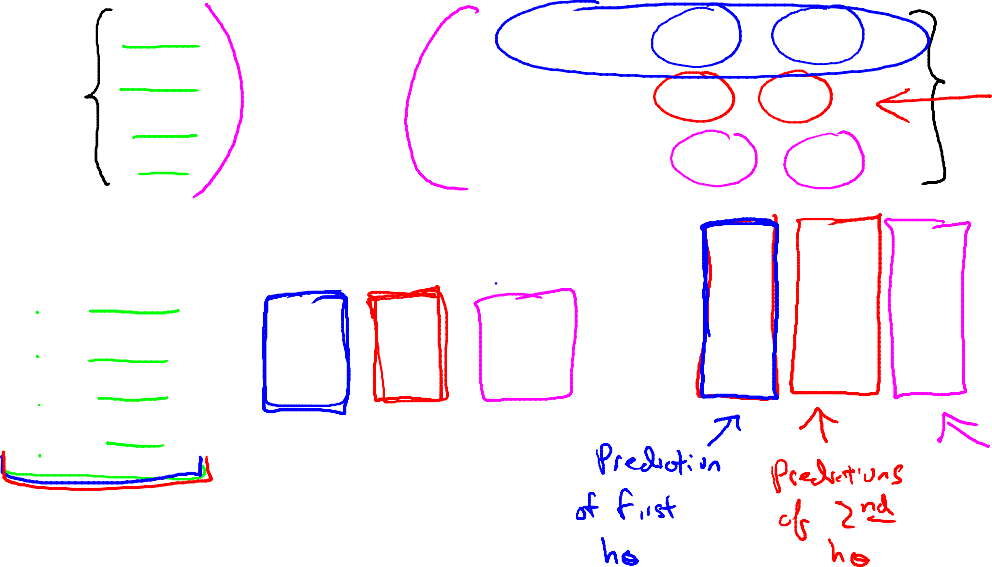 Prediction
of first
hθ
Predictions
of 2nd
hθ